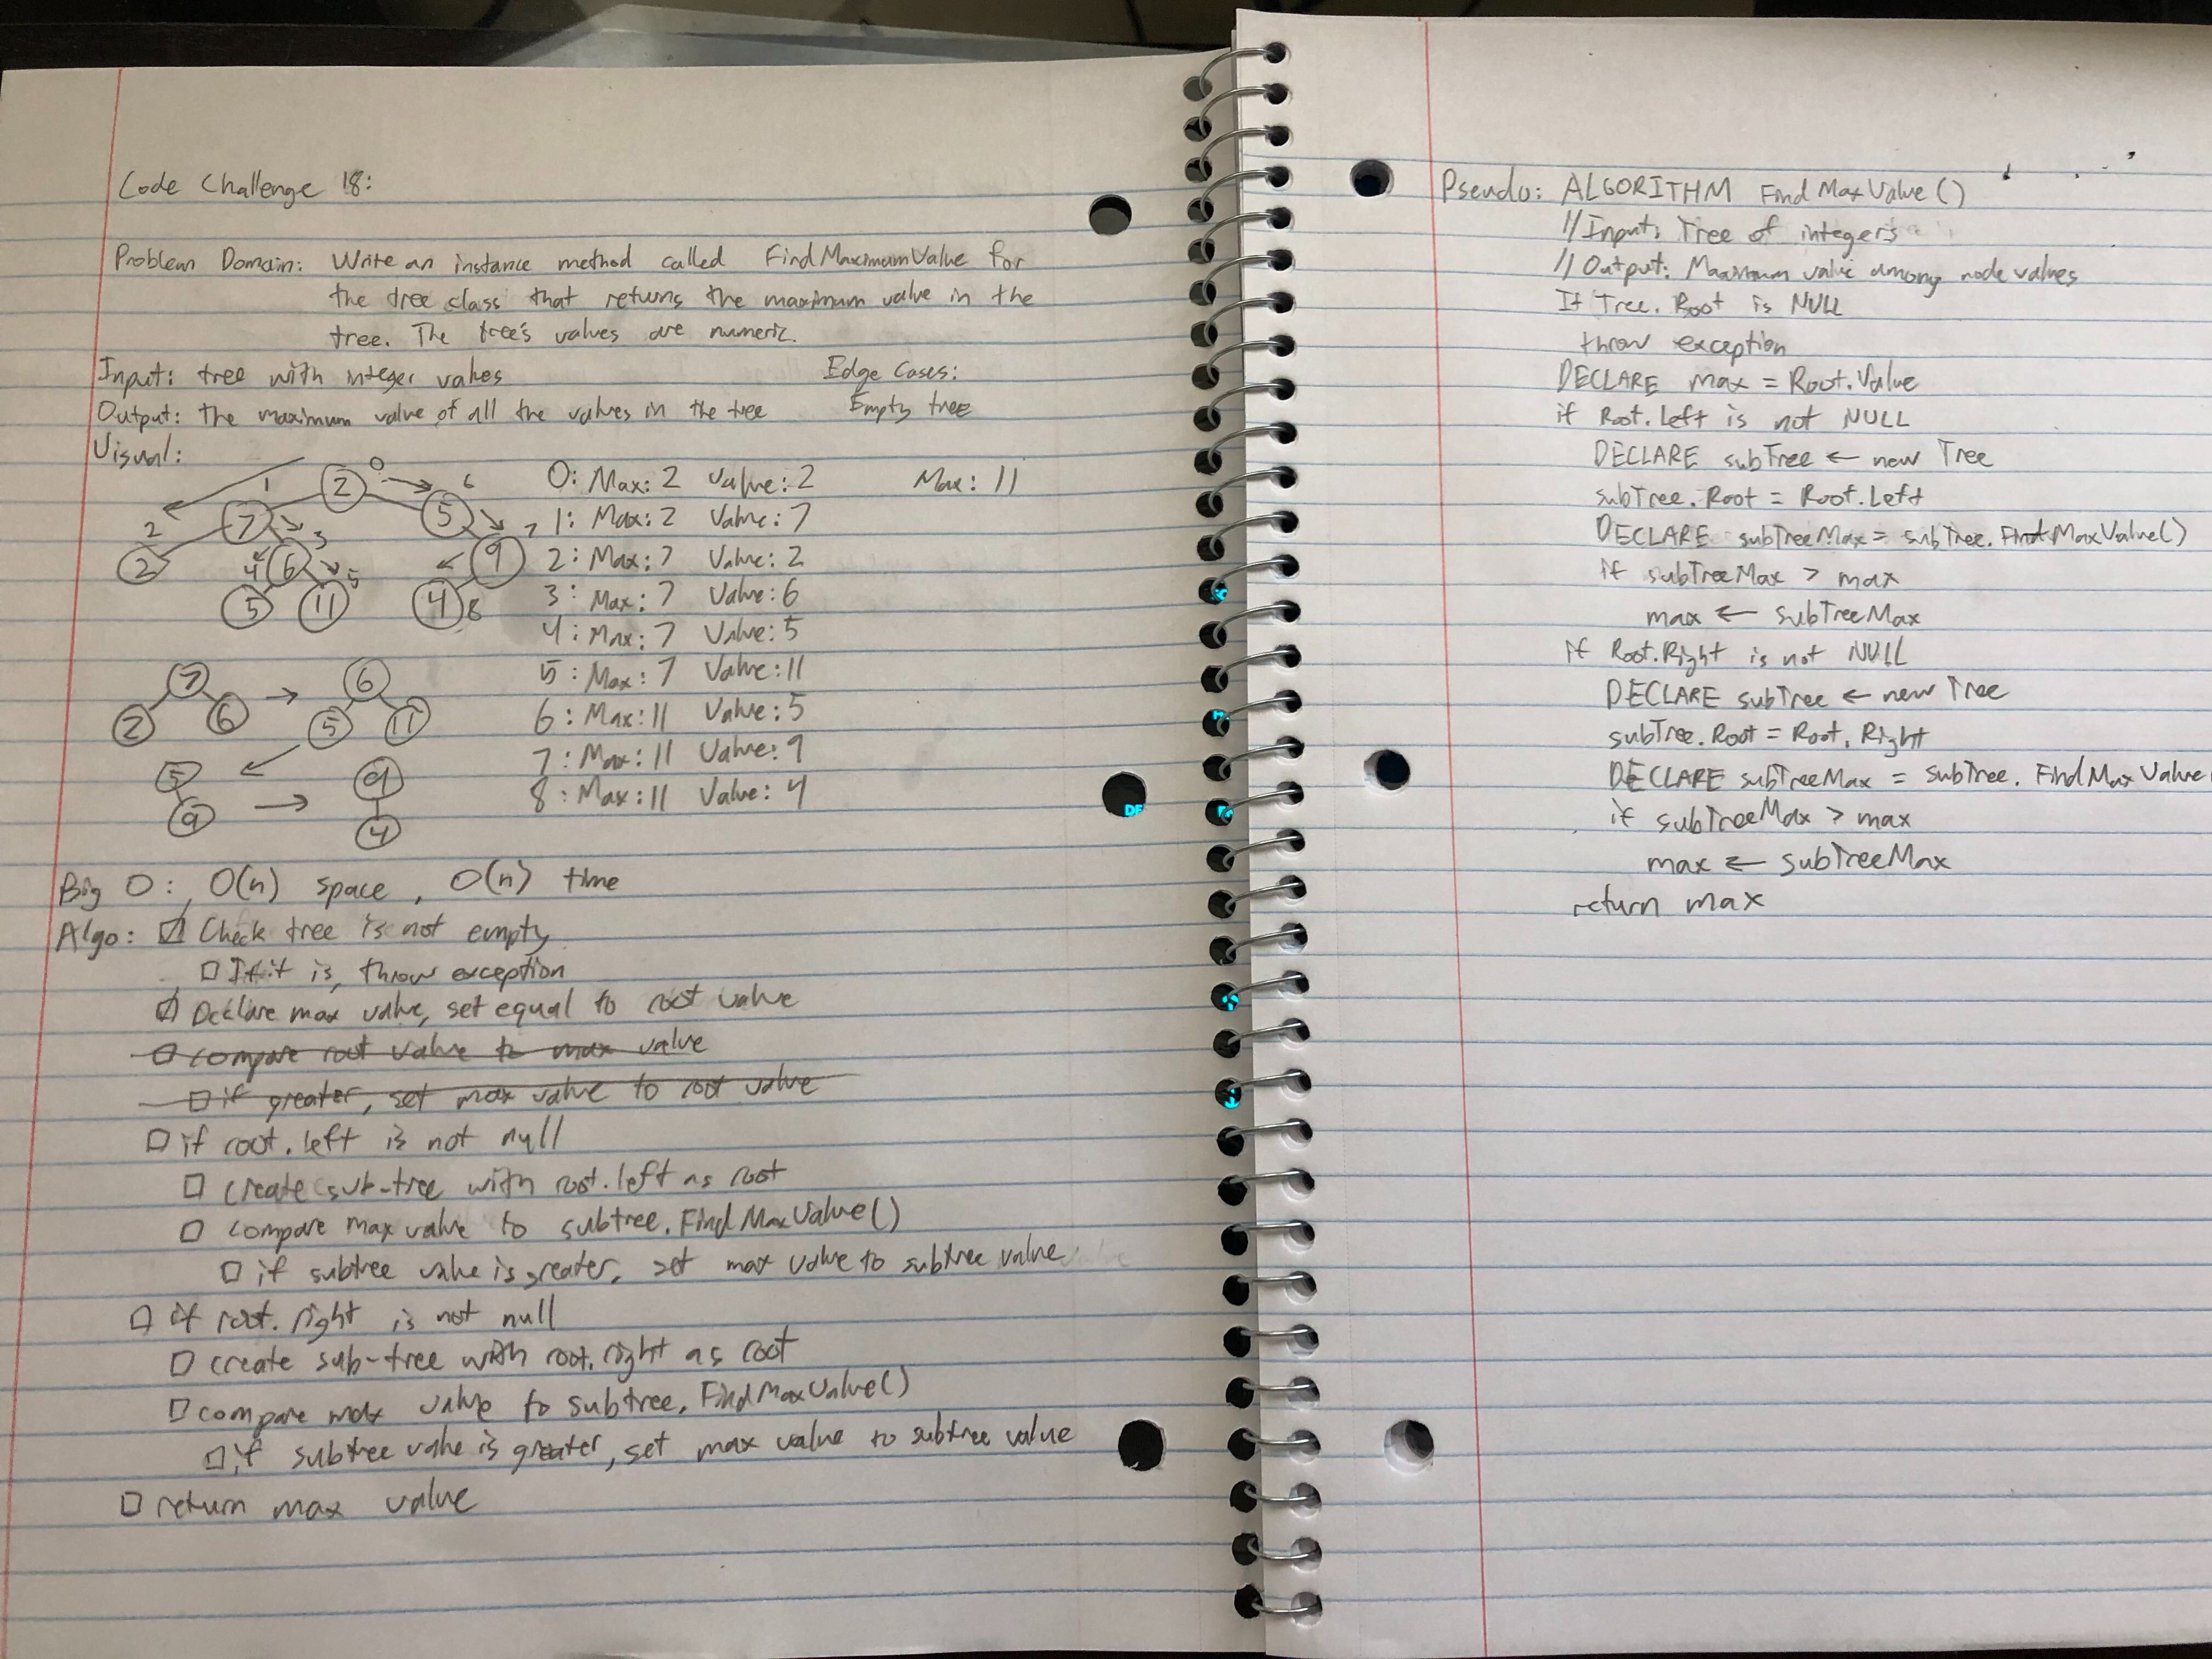 Code Challenge 18:
Problem Domain: Write an instance method called FindMaximumValue for
the tree class that returns the maximum value in the
tree. The tree's values are numeric.
Input: tree with integer values
Edge Cases:
Output: The maximum value of all the values in the tree
Empty tree
Visual:
2 0
1 6
7 5
2 3 7
2 6 9
4 5
5 11 4 8
7
2 6
6
5 11
5
9
9
4
0: Max: 2 Value: 2 Max: 11
1: Max: 2 Value: 7
2: Max: 7 Value: 2
3: Max: 7 Value: 6
4: Max: 7 Value: 5
5: Max: 7 Value: 11
6: Max: 11 Value: 5
7: Max: 11 Value: 9
8: Max: 11 Value: 4
Big O: O(n) space, O(n) time
Algo: Check tree is not empty
If it is, throw exception
Declare max value, set equal to root value
compare root value to max value
if greater, set max value to root value
if root.left is not null
create sub-tree with root.left as root
compare max value to subtree.FindMaxValue()
if subtree value is greater, set max value to subtree value
if root.right is not null
create sub-tree with root.right as root
compare max value to subtree.FindMaxValue()
if subtree value is greater, set max value to subtree value
return max value
Pseudo: ALGORITHM FindMaxValue()
//Input: Tree of integers
//Output: Maximum value among node values
If Tree.Root is NULL
throw exception
DECLARE max = Root.Value
if Root.Left is not NULL
DECLARE subTree ← new Tree
subTree.Root = Root.Left
DECLARE subTreeMax = subTree.FindMaxValue()
if subTreeMax > max
max ← subTreeMax
if Root.Right is not NULL
DECLARE subTree ← new Tree
subTree.Root = Root.Right
DECLARE subTreeMax = subTree.FindMaxValue(
if subTreeMax > max
max ← subTreeMax
return max